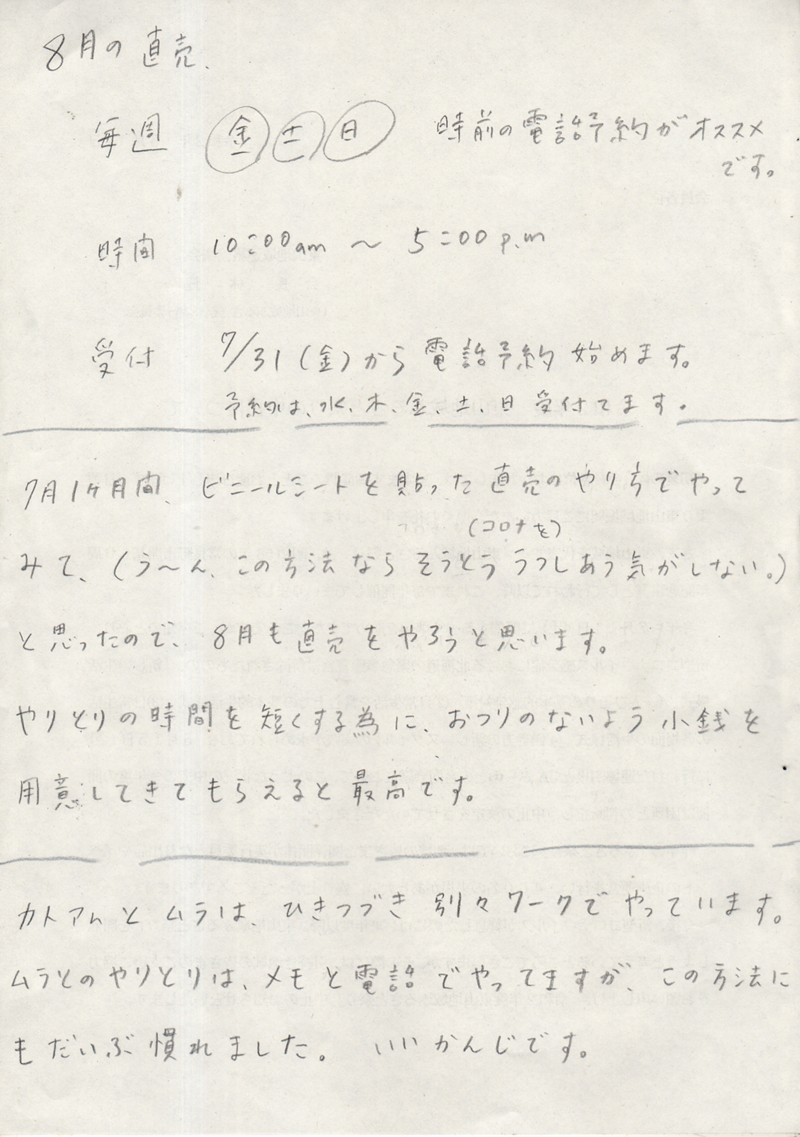 8月の直売、
毎週 金 土 日 時前の電話予約がオススメ
です。
時間 10:00am 〜 5:00 p.m
受付 7/31(金)から電話予約始めます。
予約は、水、木、金、土、日 受付てます。
7月1ヶ月間、ビニールシートを貼った直売のやり方でやって
(コロナを)
みて、(う〜ん、この方法ならそうとううつしあう気がしない。)
と思ったので、8月も直売をやろうと思います。
やりとりの時間を短くする為に、おつりのないよう小銭を
用意してきてもらえると最高です。
カトアんとムラは、ひきつづき別々ワークでやっています。
ムラとのやりとりは、メモと電話でやってますが、この方法に
もだいぶ慣れました。 いいかんじです。